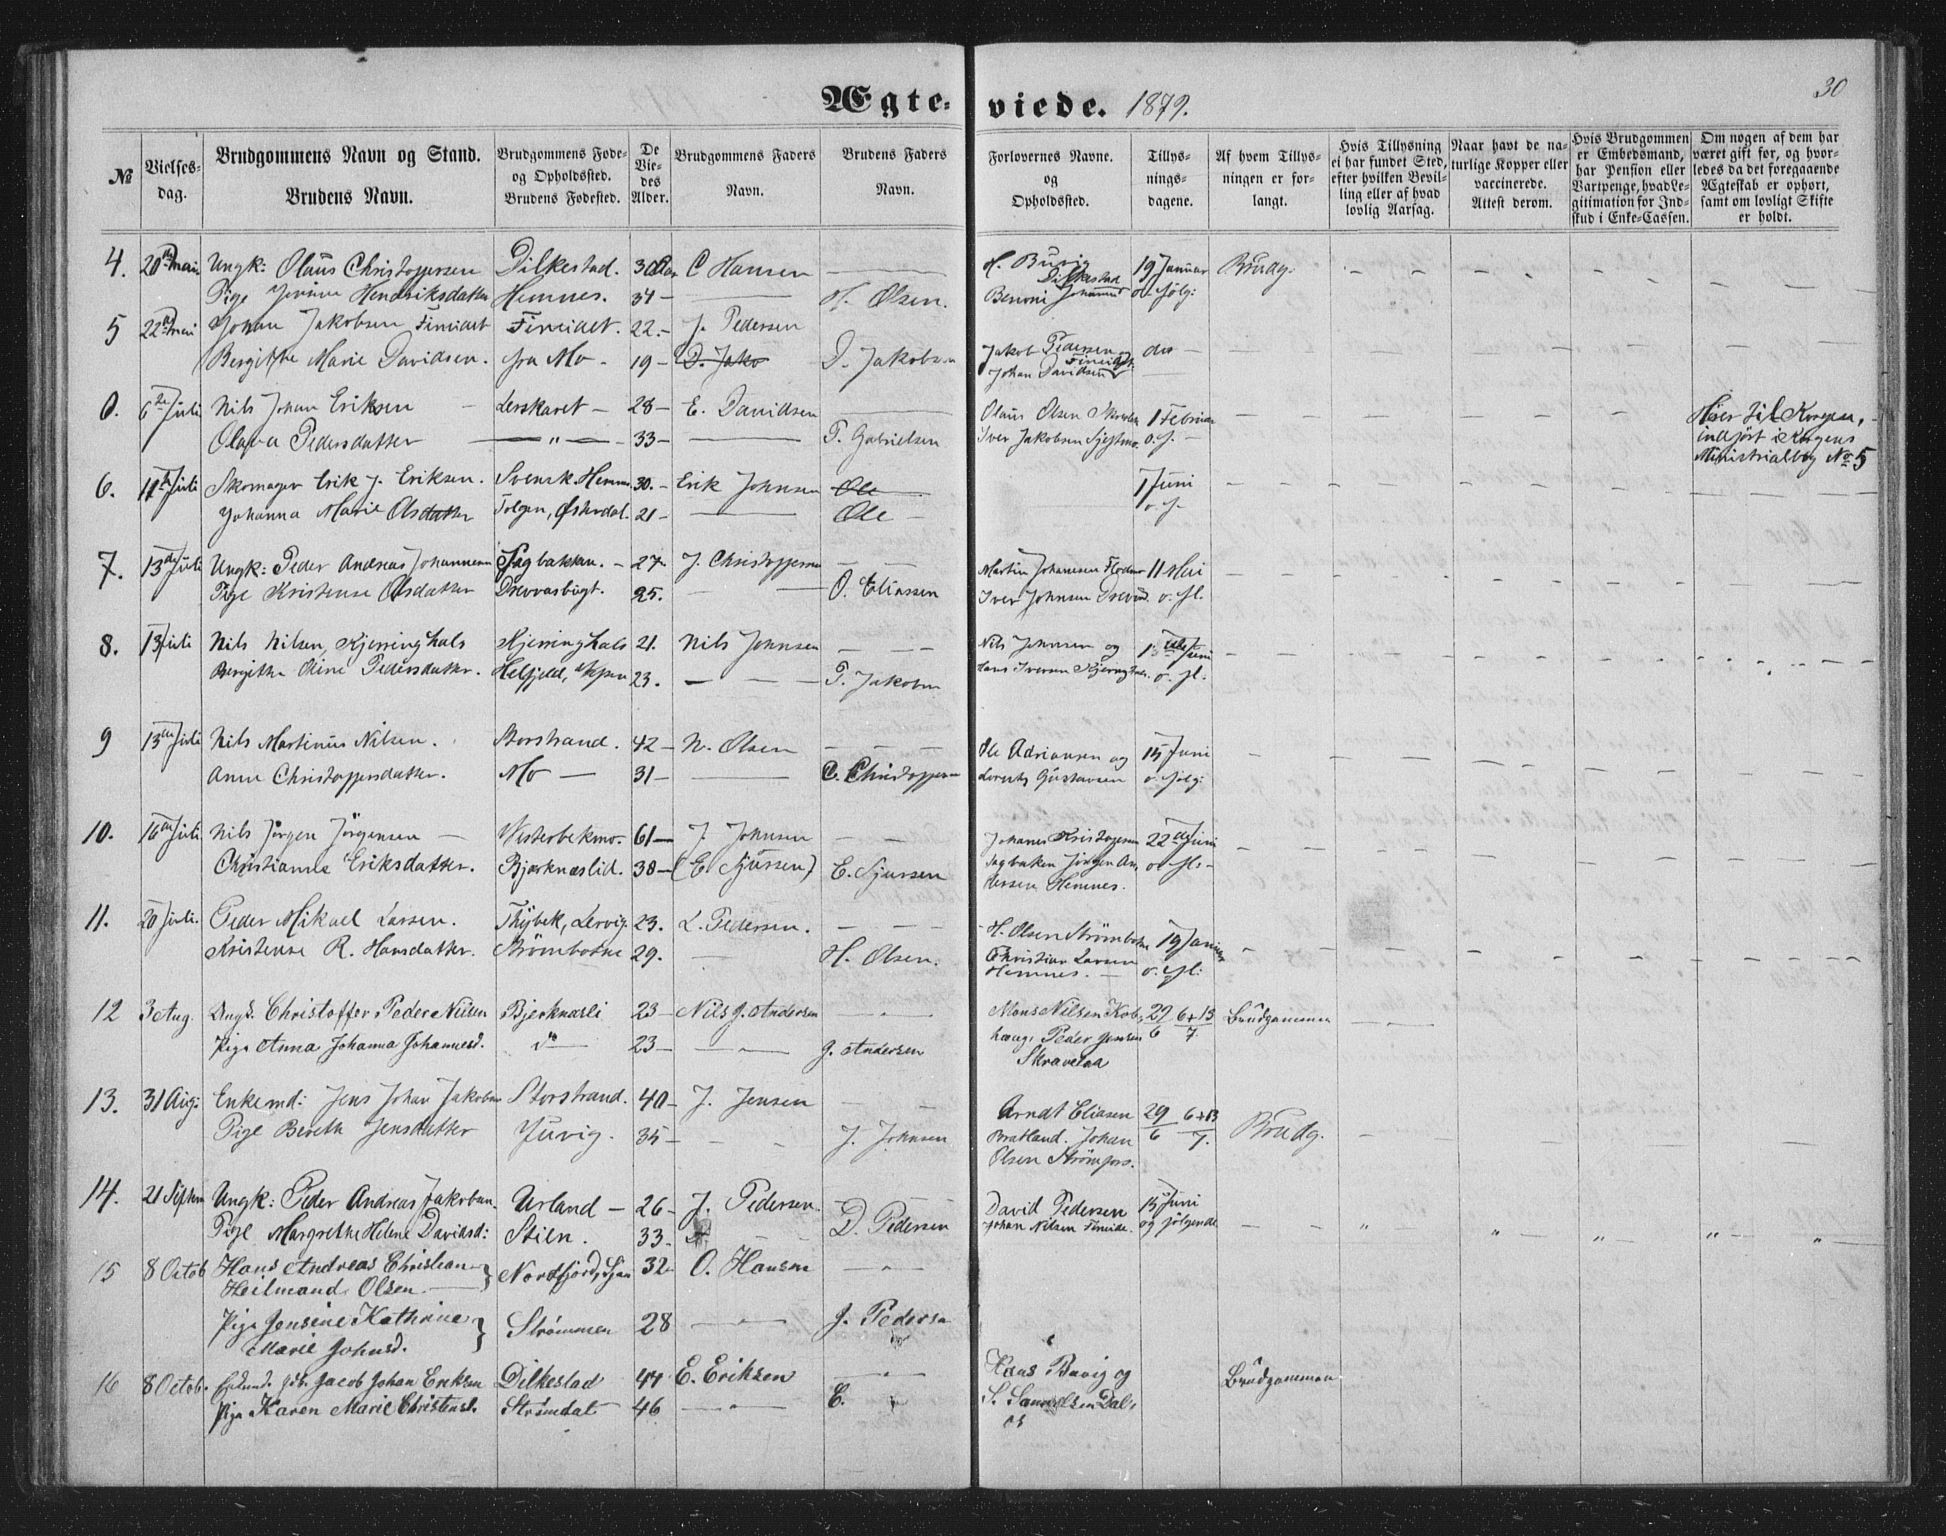 30
Ægteviede. 1879.
№
Vielses-dag.
Brudgommens Navn og Stand.
Brudens Navn.
Brudgommens Føde- og Opholdssted.
Brudens Fødested.
De Viedes Alder.
Brudgommens Faders Navn.
Brudens Faders Navn.
Forlovernes Navne. og Opholdssted.
Tillysningsdagene.
Af hvem Tillysningen er forlangt.
Hvis Tillysning ei har fundet Sted, efter hvilken Bevilling eller af hvad lovlig Aarsag.
Naar havt de naturlige Kopper eller vaccinerede. Attest derom.
Hvis Brudgommen er Embedsmand, har Pension eller Vartpenge, hvad Legitimation for Indskud i Enke-Cassen.
Om nogen af dem har været gift før, og hvorledes da det foregaaende Ægteskab er ophørt, samt om lovligt Skifte er holdt.
4. 20de mai Ungk: Olaus Christoffersen Dilkestad. 30 Aar C Hansen — H. Buvig Dilkestad 19 Januar Brudg.
Pige Hendriksdatter Hemnes. 34 — H. Olsen. Benoni o. følg:
5 22de mai Johan Jakobsen Fineidet Fineidet. 22. J. Pedersen
Bergitthe Marie Davidsen. fra Mo 19 D. Jako D. Jakobsen Jakob Pedersen Fineidet do
Johan Davidsen
6te Juli Nils Johan Eriksen Lerskaret 28 E. Davidsen Olaus Olsen 1 Februar
Olava Pedersdatter — " — 33 P. Gabrielsen Iver Jakobsen o. f.
Hører til Korgen,
indført i Korgens
Ministrialbog No 5
6. 11te Juli Skomager Erik J. Eriksen. Svensk. Hemnes 30. Erik Johnsen Ole 1 Juni
Johanna Marie Olsdatter Tolgen, Østerdal. 21 — Ole o. f.
7. 13de Juli Ungk: Peder Andreas Johannesen Sagbakken. 27 J. Christoffersen Martin Johansen 11 Mai
Pige Kristense Olsdatter 25. O. Eliassen Iver Johnsen o. fl.
8. 13 juli Nils Nilsen, Kjerringhals Kjerringhals 21. Nils Johnsen Nils Johnsen og 15de Juni
Bergitha Oline Pedersdatter. 23. P. Jakobsen Hans Iversen o. fl.
9 13de juli Nils Martinus Nilsen. Storstrand. 42 N. Olsen Ole Adriansen og 15 Juni
Anne Christoffersdatter. Mo 31 C. Christoffersen Lorents Gustavsen o. følg:
10. 16de Juli Nils Jørgen Jørgensen Vesterbekmo. 61 J. Johnsen Johanes Kristofersen 22de Juni
Christianna Eriksdatter. Bjerknæslid. 38 (E. Sjursen) E. Sjursen Sagbaken Jørgen An o. fl.
dersen Hemnes.
11. 20 juli. Peder Mikael Larsen. Thybek, Lervig. 23. L. Pedersen. H. Olsen Strømbotne 19 Januar
Kristense R. Hansdatter. Strømbotne 29. H. Olsen. Christian Larsen o. fl.
Hemnes.
12 3 Aug. Ungk. Christoffer Peder Nilsen Bjerknæsli 23 Nils J. Andersen Mons Nilsen Kob 29/6 6+13/7 Brudgommen
Pige Anna Johanna Johannesd. do 23 — " — J. Andersen hæng. Peder Jensen
Skravelaa
13. 31 Aug: Enkemd: Jens Johan Jakobsen Storstrand. 40 J. Jensen Arndt Eliasen 29/6 6+13/7. Brudg.
Pige Bereth Jensdatter Juvig. 35 J. Johnsen Bratland. Johan
Olsen Strømfors.
14. 21 Septem Ungk: Peder Andreas Jakobsen. Urland 26 J. Pedersen. David Pedersen 15 Juni
Pige Margrethe Helene Davidsd: Stien. 33. D. Pedersen Johan Nilsen Fineide. og følgende
15 8 Octob Hans Andreas Christian Nordfjord, 32 O. Hansen
Heilmand Olsen
Pige Jensine Kathrine Strømmen 28 — " — J. Pedersen
Marie Johnsd.
16 8 Octob. Jacob Johan Eriksen Dilkestad 44 E. Eriksen Hans Buvig og Brudgommen
Pige Karen Marie Christensd. Strømdal 46 — " — C. S. Samuelsen Dals
os